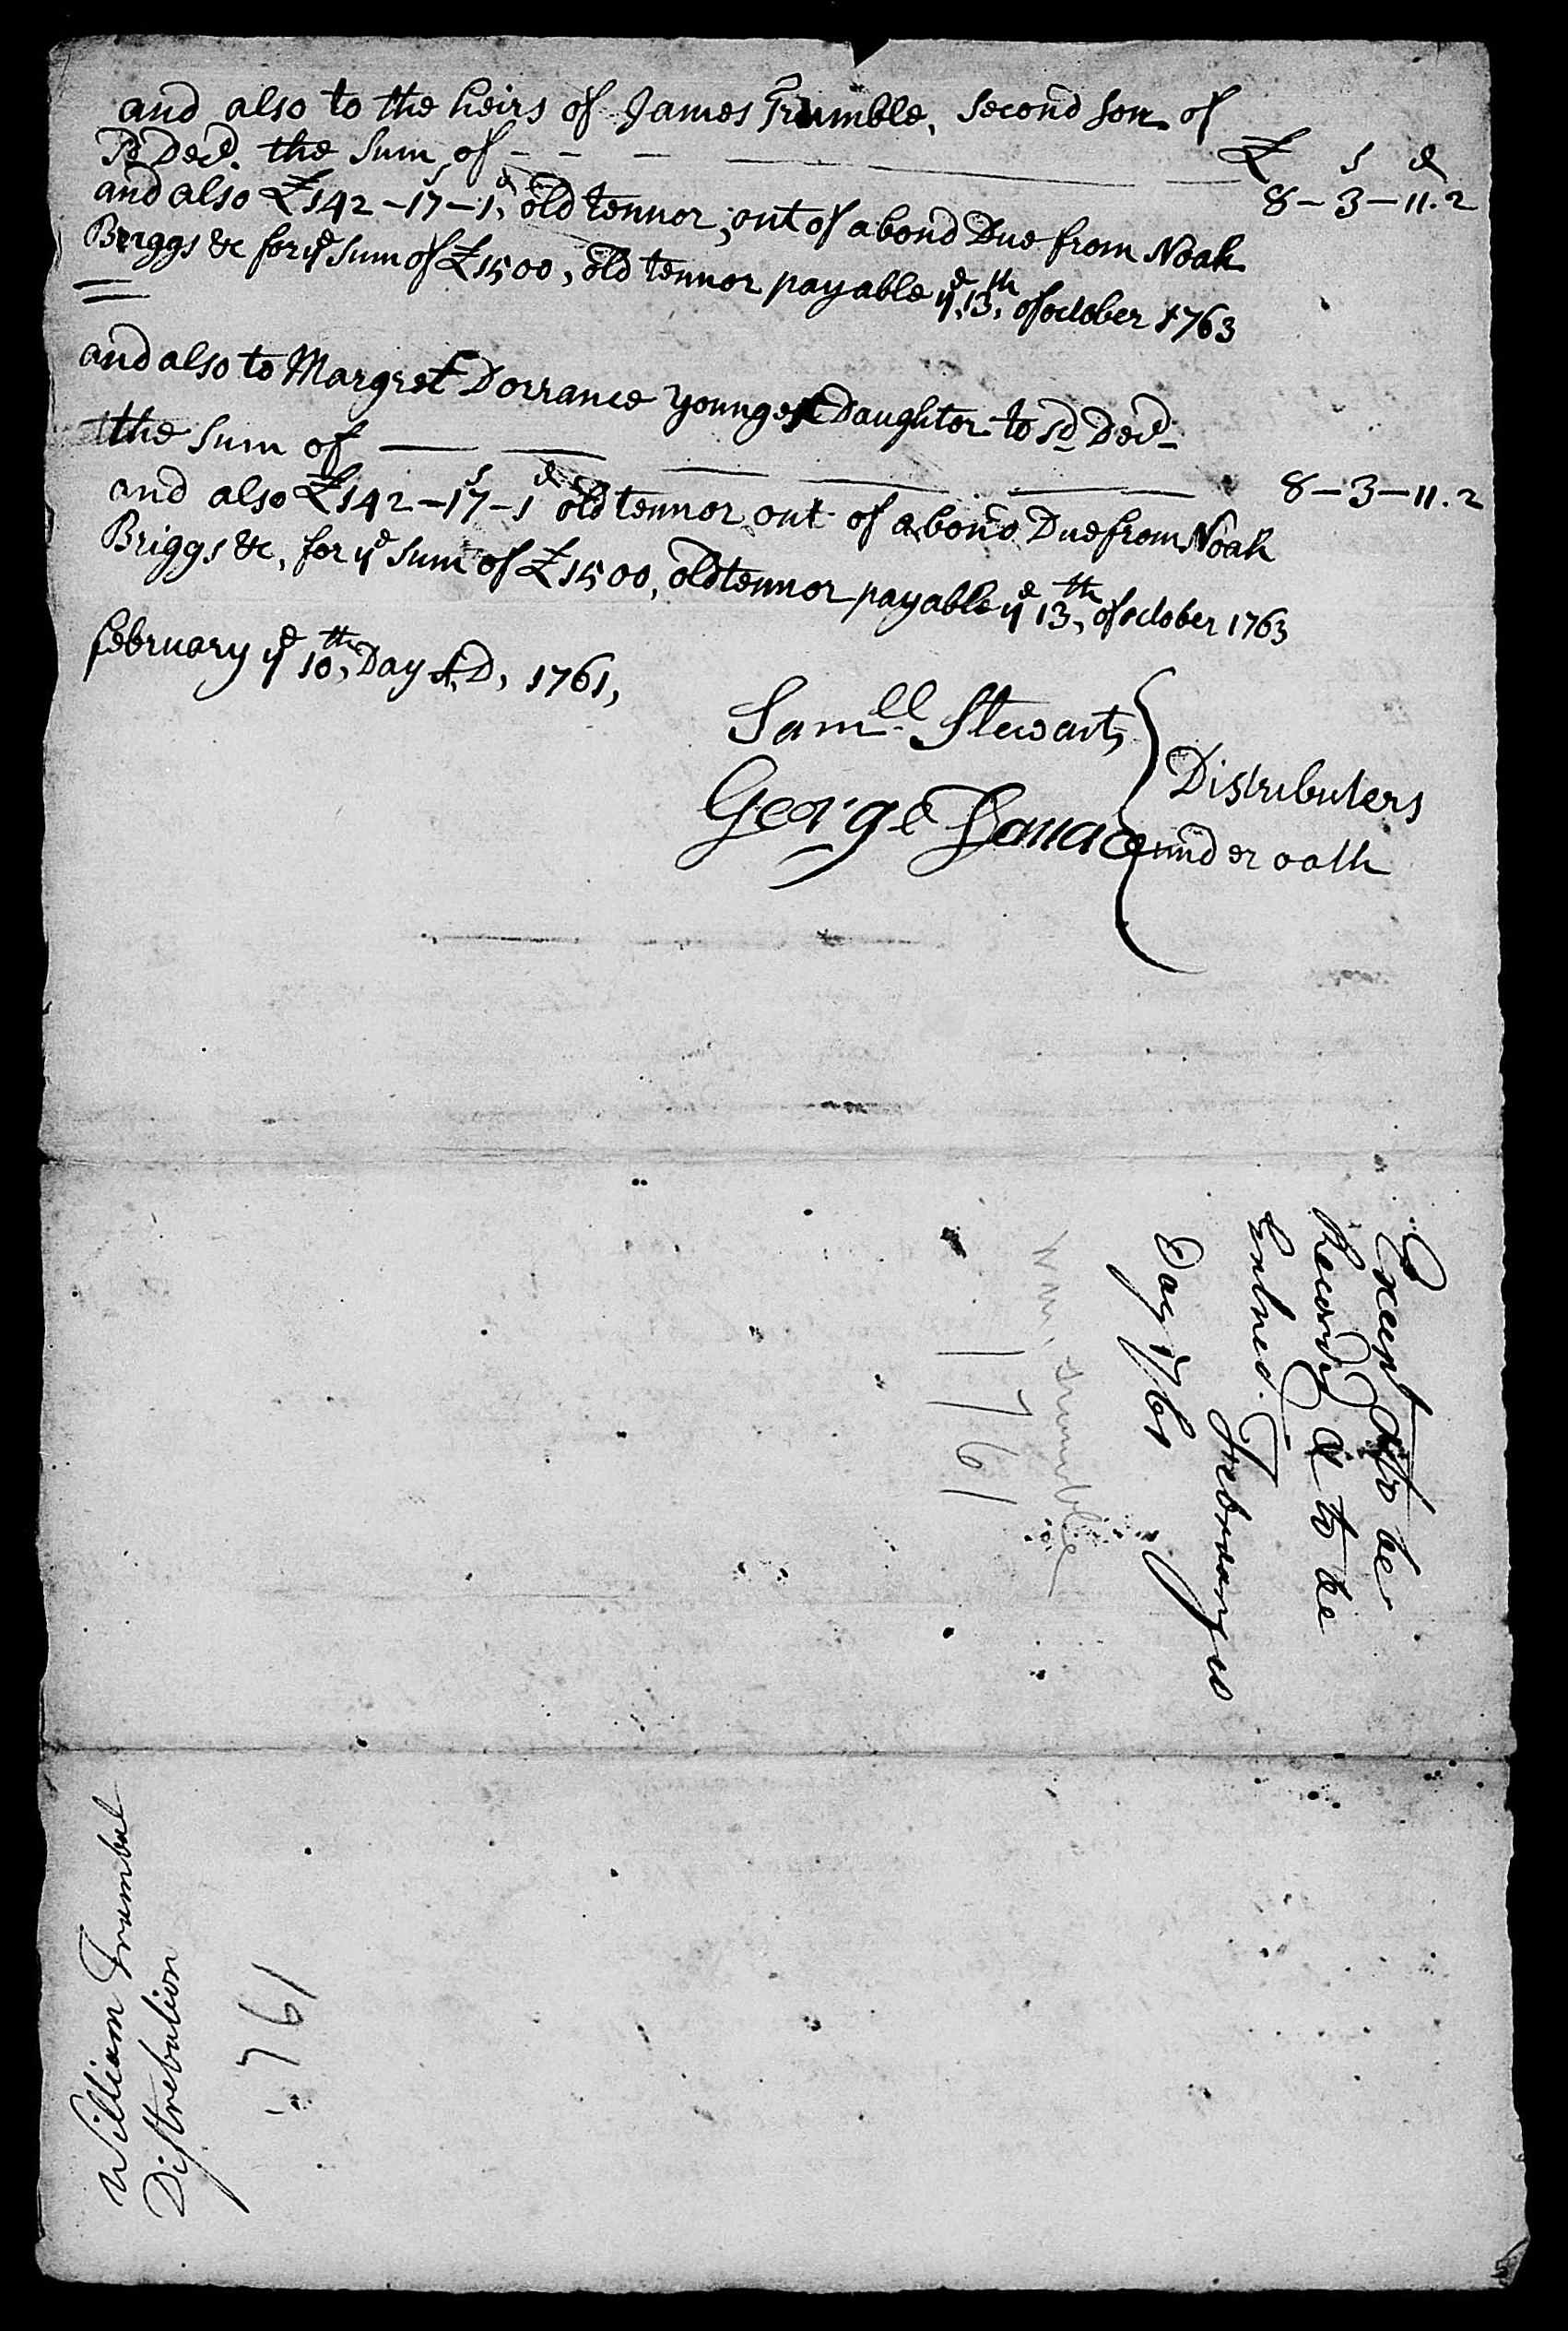 and also to the heirs of James Trumble, second son of
sd Decd. the sum of - - - £ s d
8-3-11.2
and also £142-17-1, old tennor, out of a bond Due from Noah
Briggs &c for ye sum of £1500, old tennor payable ye 13th, of october 1763
and also to Margret Dorrance youngest Daughter to sd Decd
the sum of 8-3-11.2
and also £142-17-1 old tennor out of a bond Due from Noah
Briggs &c, for ye sum of £1500, old tennor payable ye 13th, of october 1763
february ye 10th, Day A,D, 1761,
Samll Stewart,
Distributers
George
under oath
Except to be
Recorded & to be
February 10
Day 1761
Wm. Trumble
1761
William Trumbul
Distrebution
1761